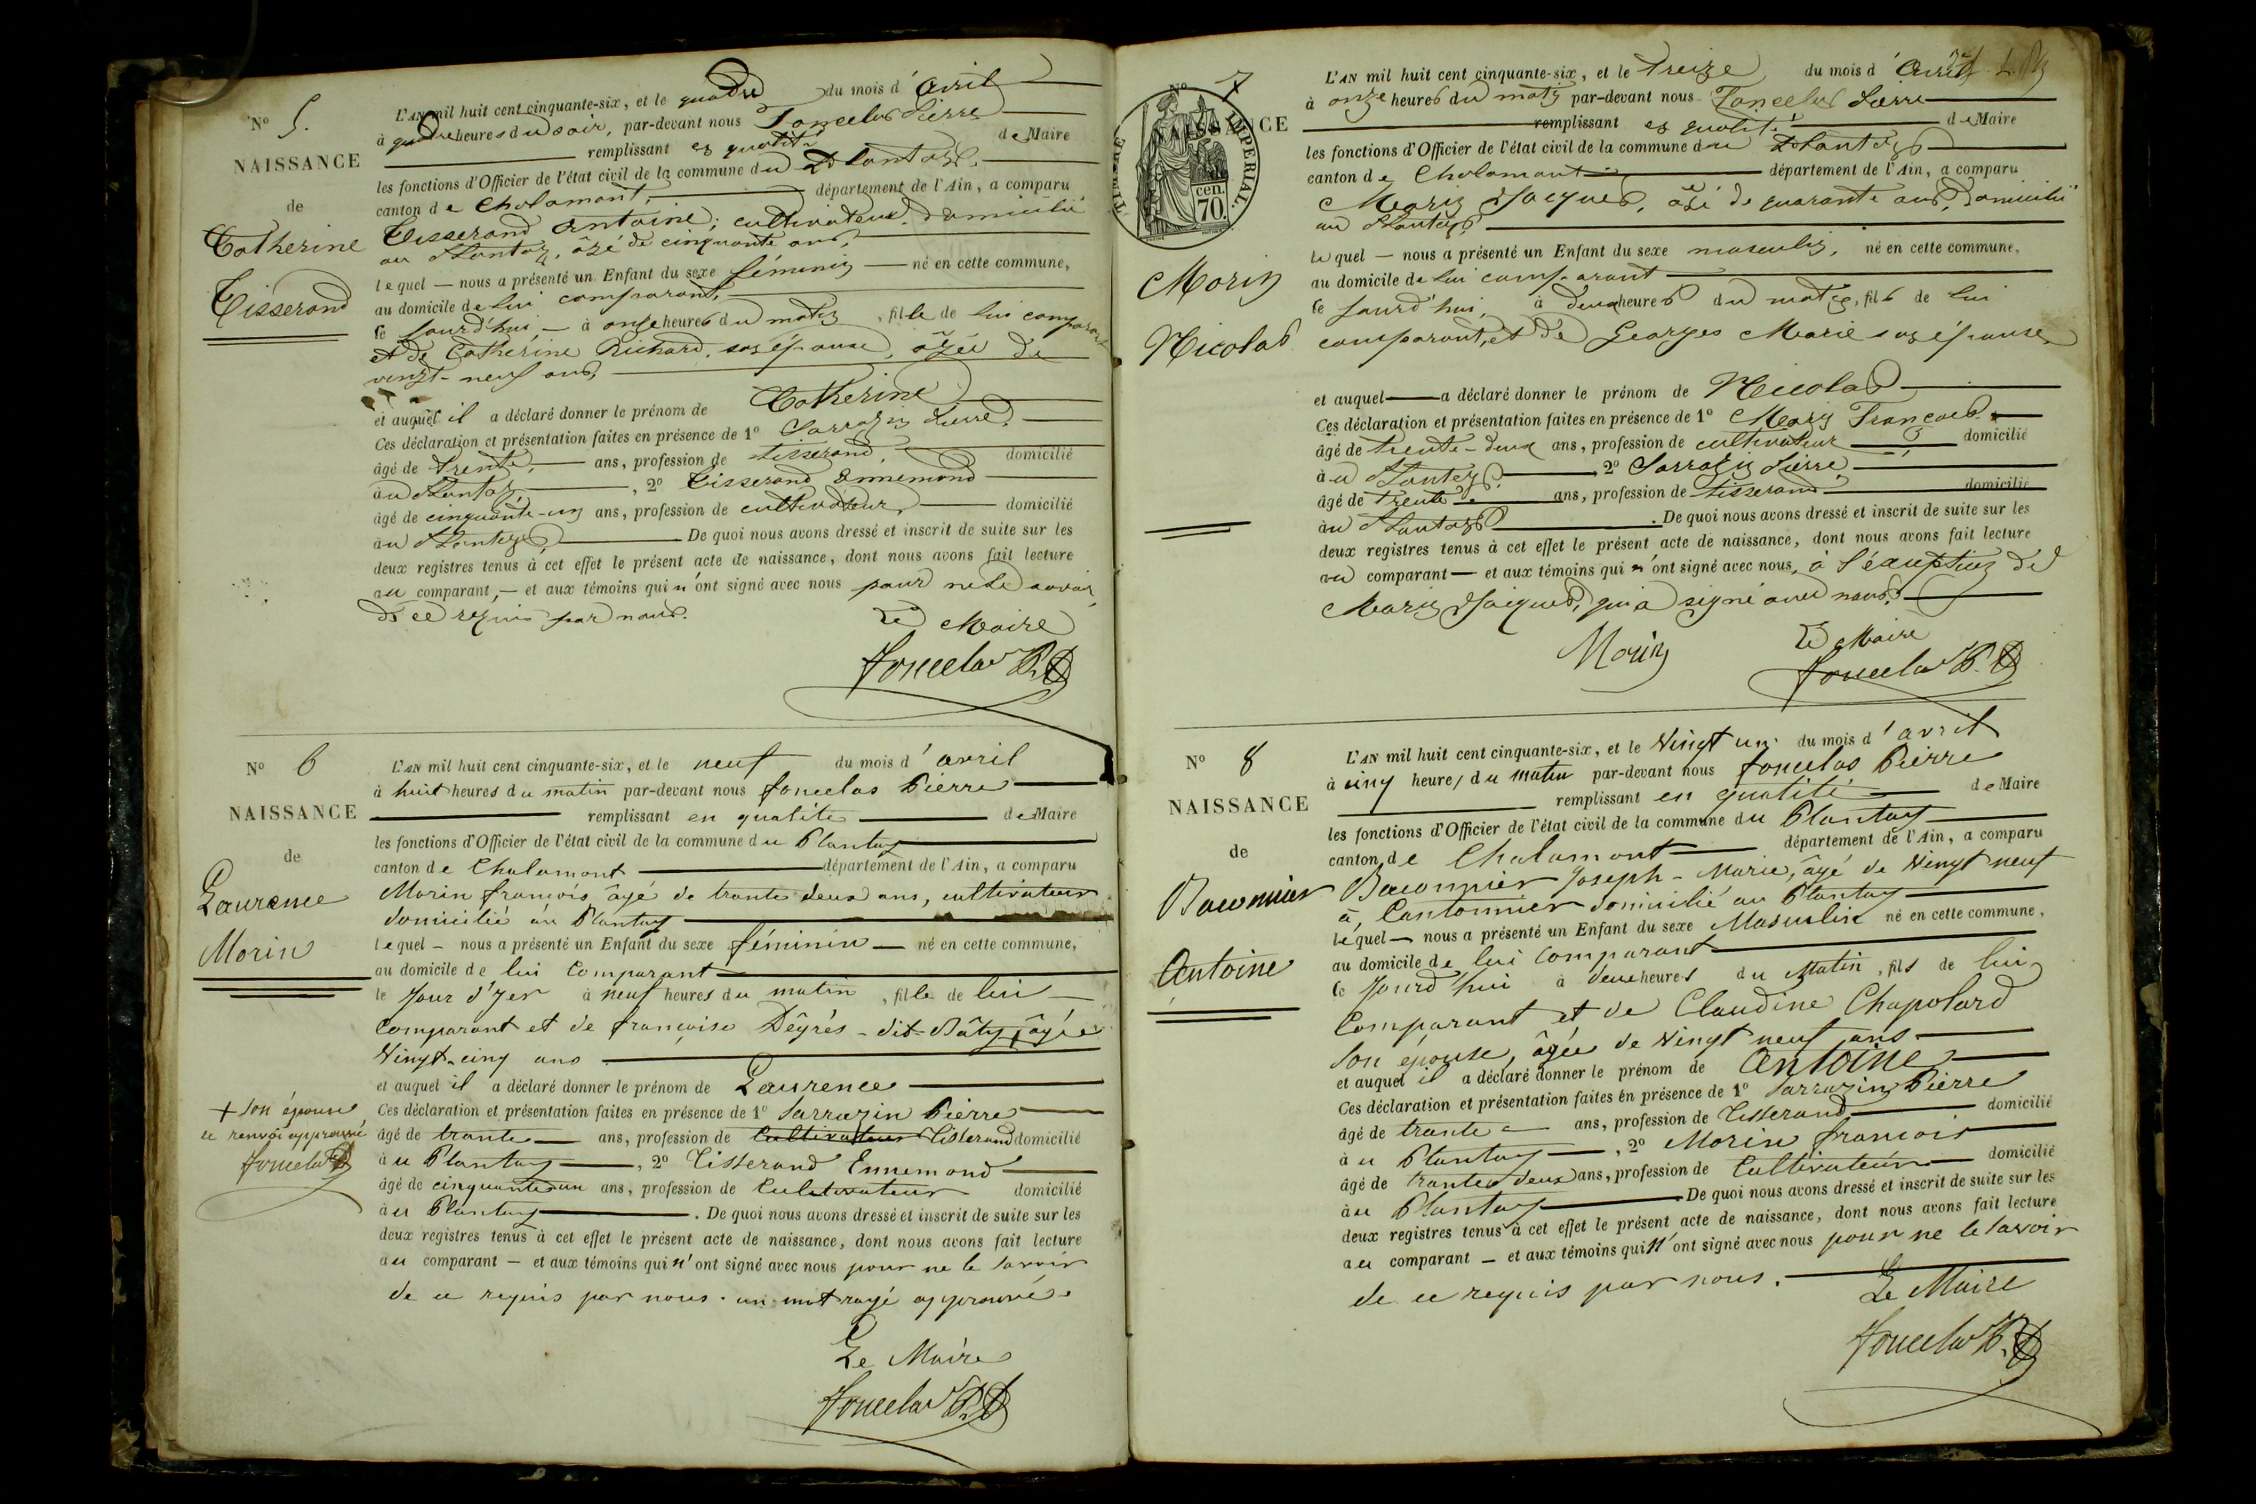 No 5.
NAISSANCE
de
Catherine
Tisserand
L'AN mil huit cent cinquante-six, et le quatre du mois d'avril
à quatre heures du soir, par-devant nous Foncelas Pierre
remplissant en qualité de Maire
les fonctions d'Officier de l'état civil de la commune du Plantay
canton de Chalamont, département de l'Ain, a comparu
Tisserand Antoine, cultivateur, domicilié
au Plantay, âgé de cinquante ans,
lequel — nous a présenté un Enfant du sexe féminin — né en cette commune,
au domicile de lui comparant,
le jourd'hui — à onze heures du matin, fille de lui comparant
et de Catherine Richard, son épouse, âgée de
vingt-neuf ans,
et auquel il a déclaré donner le prénom de Catherine
Ces déclaration et présentation faites en présence de 1o Sarrazin Pierre,
âgé de trente, — ans, profession de tisserand, domicilié
au Plantay, 2o Tisserand Ennemond
âgé de cinquante-un ans, profession de cultivateur, domicilié
au Plantay, De quoi nous avons dressé et inscrit de suite sur les
deux registres tenus à cet effet le présent acte de naissance, dont nous avons fait lecture
au comparant, — et aux témoins qui n'ont signé avec nous pour ne le savoir,
de ce requis par nous.
Le Maire
Foncelas P.
No 6
NAISSANCE
de
Laurence
Morin
L'AN mil huit cent cinquante-six, et le neuf du mois d'avril
à huit heures du matin par-devant nous foncelas Pierre
remplissant en qualité de Maire
les fonctions d'Officier de l'état civil de la commune du Plantay
canton de Chalamont département de l'Ain, a comparu
Morin françois âgé de trante deux ans, cultivateur
domicilié au Plantay
lequel — nous a présenté un Enfant du sexe féminin — né en cette commune,
au domicile de lui Comparant
le Jour d'yer à neuf heures du matin, fille de lui —
Comparant et de françoise Dêgrès - dit- Bâty + âgée
Vingt-cinq ans
et auquel il a déclaré donner le prénom de Laurence
Ces déclaration et présentation faites en présence de 1o Sarrazin Pierre
âgé de trante — ans, profession de Cultivateur Tisserand domicilié
au Plantay —, 2o Tisserand Ennemond
âgé de cinquante un ans, profession de Cultivateur domicilié
au Plantay. De quoi nous avons dressé et inscrit de suite sur les
deux registres tenus à cet effet le présent acte de naissance, dont nous avons fait lecture
au comparant — et aux témoins qui n'ont signé avec nous pour ne le savoir
de ce requis par nous. un mot rayé approuvé.
+ son épouse
ce renvoi approuvé
foncelas
Le Maire
foncelas P.
No 7
TIMBRE IMPERIAL.
cen.
70.
NAISSANCE
Morin
Nicolas
L'AN mil huit cent cinquante-six, et le treize du mois d'Avril
à onze heures du matin par-devant nous Foncelas Pierre
remplissant en qualité de Maire
les fonctions d'Officier de l'état civil de la commune du Plantay
canton de Chalamont département de l'Ain, a comparu
Morin Jacques, âgé de quarante ans, domicilié
au Plantay,
lequel — nous a présenté un Enfant du sexe masculin, né en cette commune,
au domicile de lui comparant
le jourd'hui, à deux heures du matin, fils de lui
comparant, et de Georges Marie son épouse,
et auquel — a déclaré donner le prénom de Nicolas
Ces déclaration et présentation faites en présence de 1o Morin François
âgé de trente-deux ans, profession de cultivateur domicilié
au Plantay. 2o Sarrazin Pierre
âgé de trente ans, profession de tisserand domicilié
au Plantay. De quoi nous avons dressé et inscrit de suite sur les
deux registres tenus à cet effet le présent acte de naissance, dont nous avons fait lecture
au comparant — et aux témoins qui n'ont signé avec nous, à l'éxception de
Morin Jacques, qui a signé avec nous.
Morin
Le Maire
foncelas P.
No 8
NAISSANCE
de
Baconnier
Antoine
L'AN mil huit cent cinquante-six, et le Vingt un du mois d'avril
à cinq heures du matin par-devant nous foncelas Pierre
remplissant en qualité de Maire
les fonctions d'Officier de l'état civil de la commune du Plantay
canton de Chalamont département de l'Ain, a comparu
Baconnier Joseph-Marie, âgé de Vingt neuf
à, Cantonnier domicilié au Plantay
lequel — nous a présenté un Enfant du sexe Masculin né en cette commune,
au domicile de lui Comparant
le Jourd'hui à deux heures du Matin, fils de lui
Comparant et de Claudine Chapolard
Son épouse, âgée de Vingt neuf ans
et auquel il a déclaré donner le prénom de Antoine
Ces déclaration et présentation faites en présence de 1o Sarrazin Pierre
âgé de trante — ans, profession de Tisserand domicilié
au Plantay —, 2o Morin françois
âgé de trante deux ans, profession de Cultivateur domicilié
au Plantay. De quoi nous avons dressé et inscrit de suite sur les
deux registres tenus à cet effet le présent acte de naissance, dont nous avons fait lecture
au comparant — et aux témoins qui n'ont signé avec nous pour ne le savoir
de ce requis par nous.
Le Maire
foncelas P.